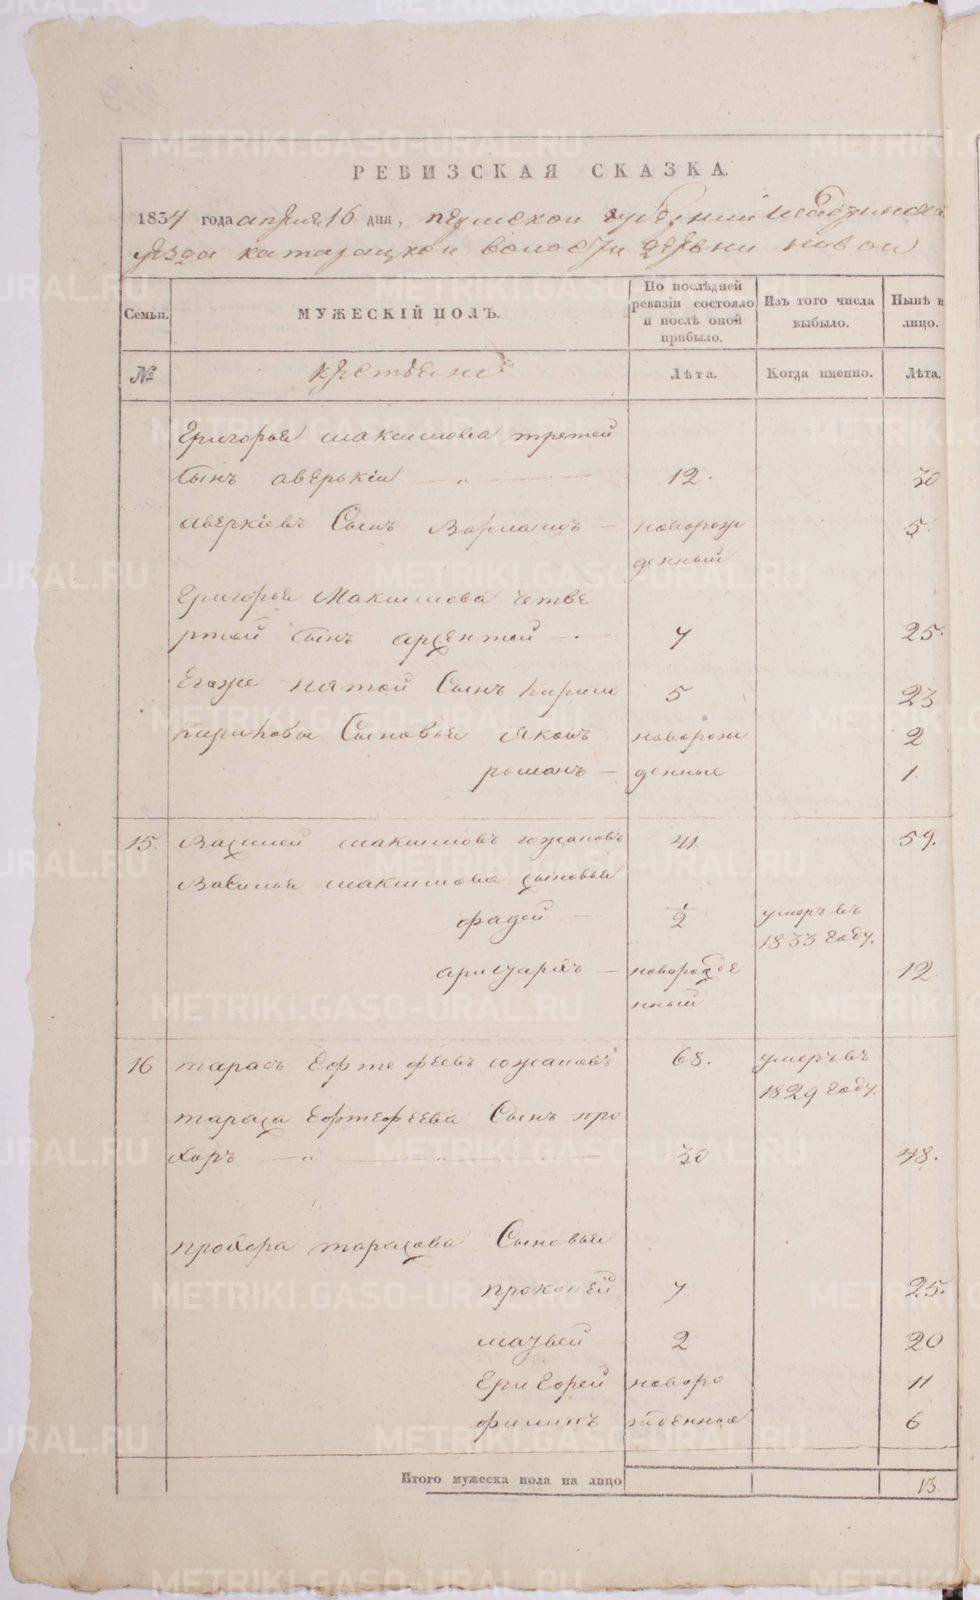 РЕВИЗСКАЯ СКАЗКА.
1834 года апреля 16 дня, пермской губернии Шадринскаго
уезда катарацкой волости деревни новой
Семьи. МУЖЕСКІЙ ПОЛЪ. По послѣдней ревизіи состояло и послѣ оной прибыло. Изъ того числа выбыло. Нынѣ на лицо.
№ крестьяне Лѣта. Когда именно. Лѣта.
Григорья максимова третей
сынъ аверькіи — „ — 12. 30
аверкіевъ Сынъ Варламъ — новорож 5.
денный
Григорья Максимова четве
ртой сынъ арсентей — 7 25.
Егоже пятой Сынъ кирил 5 23
Сыновья Яковъ новорож 2
романъ — денные 1.
15. Василей максимовъ южаковъ 41 59.
Василья максимова сыновья
фадей — 1/2 умеръ въ
1833 году.
— новорожде 12.
нный
16 тарасъ южаковъ 68. умеръ въ
1829 году.
тараса Сынъ про
хоръ — „ — 30 48.
прохора тарасова Сыновья
прокопей 7 25.
матвей 2 20
Григорей новоро 11
филипъ жденные 6
Итого мужеска пола на лицо 13.
METRIKI.GASO-URAL.RU